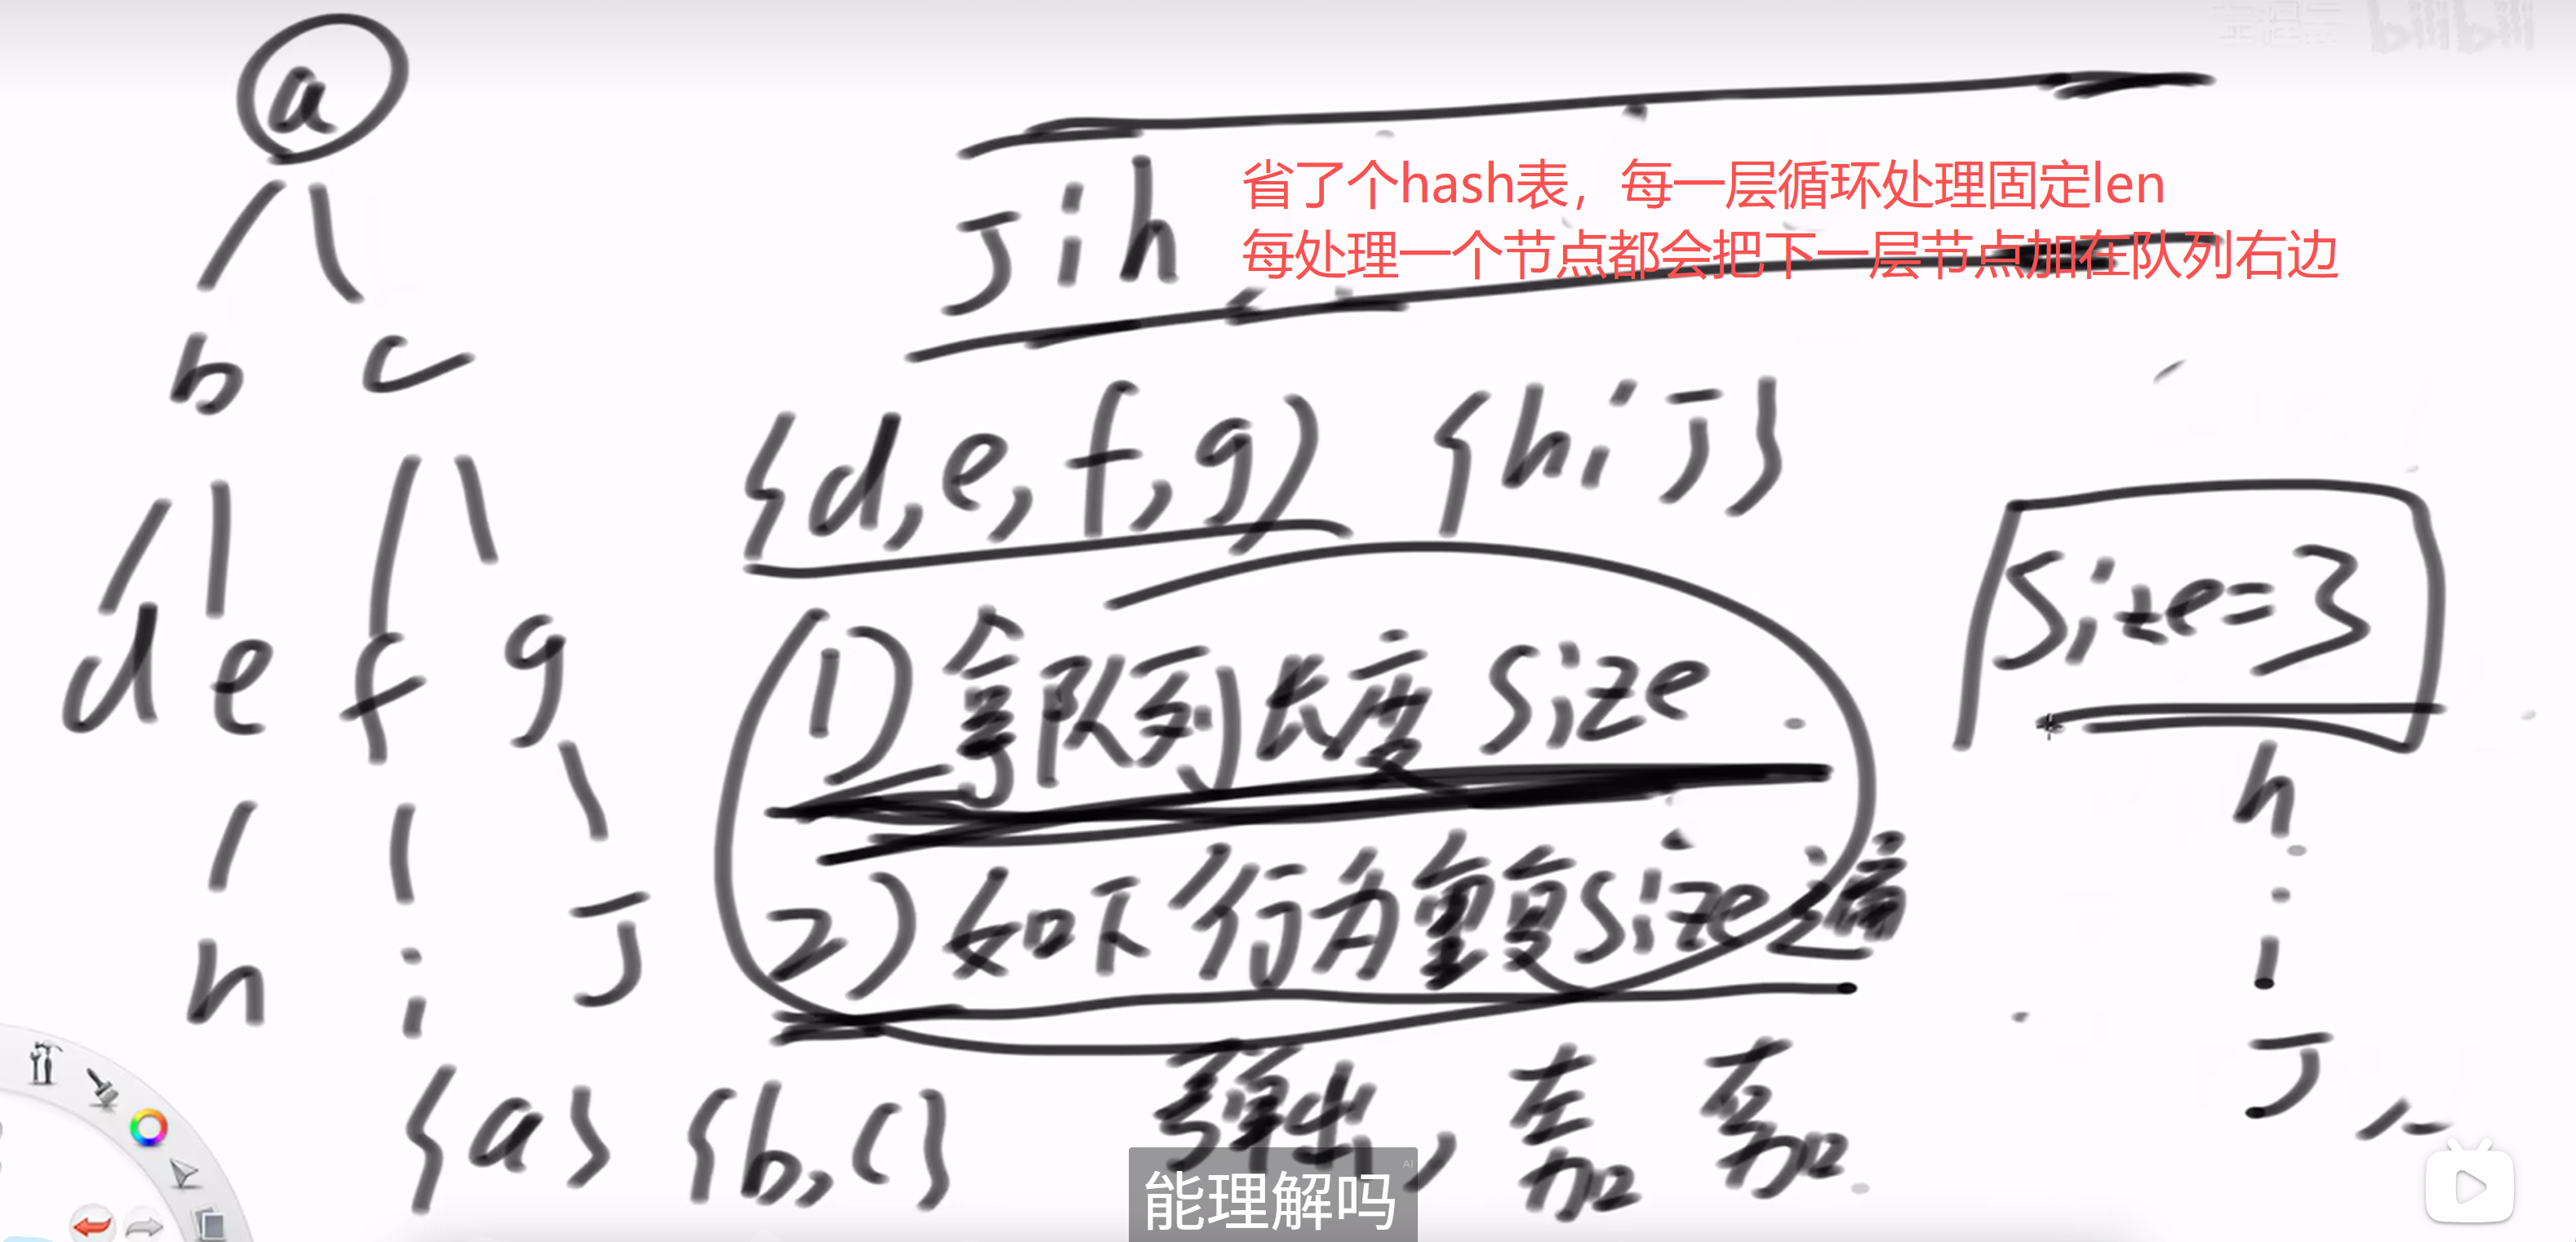 a
b c
d e f g
h i J
J i h
省了个hash表，每一层循环处理固定len
每处理一个节点都会把下一层节点加在队列右边
{d,e,f,g} {h i J}
1) 拿队列长度 Size
2) 如下行为重复Size遍
弹出，左加 右加
{a} {b,c}
Size=3
h
i
J
能理解吗
AI
bilibili